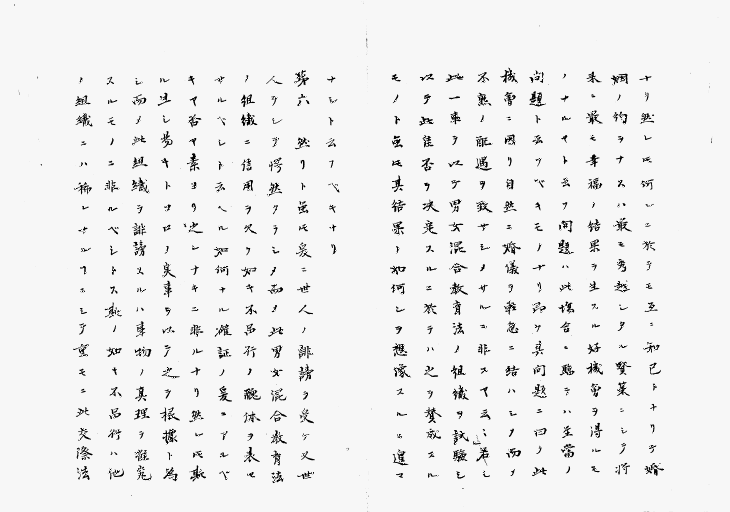 ナリ然レ𪜈何レニ於テモ互ニ知已トナリテ婚
姻ノ約ヲナスハ最モ考越シタル賢策ニシテ将
来ニ最モ幸福ノ結果ヲ生スル好機會ヲ得ルモ
ノナルヤト云フ問題ハ此塲合ニ臨テハ至當ノ
問題ト云フベキモノナリ即チ其問題ニ曰ク此
機會ニ因リ自然ニ婚儀ヲ軽急ニ結ハシメ而メ
不熟ノ配遇ヲ致サシメサルニ非スヤ云々若シ
此一事ヲ以テ男女混合教育法ノ組織ヲ試驗シ
以テ此能否ヲ决定スルニ於テハ之ヲ賛成スル
モノト虽𪜈其結果ト如何シヲ想像スルニ遑マ
ナシト云フベキナリ
第六 然リト虽𪜈爰ニ世人ノ誹謗ヲ受ケ又世
人ヲシテ愕然タラシメ而メ此男女混合教育法
ノ組織ニ信用ヲ欠ク如キ不品行ノ醜体ヲ表セ
サルベシト云ヘル如何ナル確証ノ爰ニアルベ
キヤ否ヤ素ヨリ之レナキニ非ルナリ然レ𪜈斯
ル生シ易キトコロノ実事ヲ以テ之ヲ根據ト為
シ而メ此組織ヲ誹謗スルハ事物ノ真理ヲ推究
スルモノニ非ルベシトス斯ノ如キ不品行ハ他
ノ組織ニハ稀レナルヿニシテ重モニ此交際法